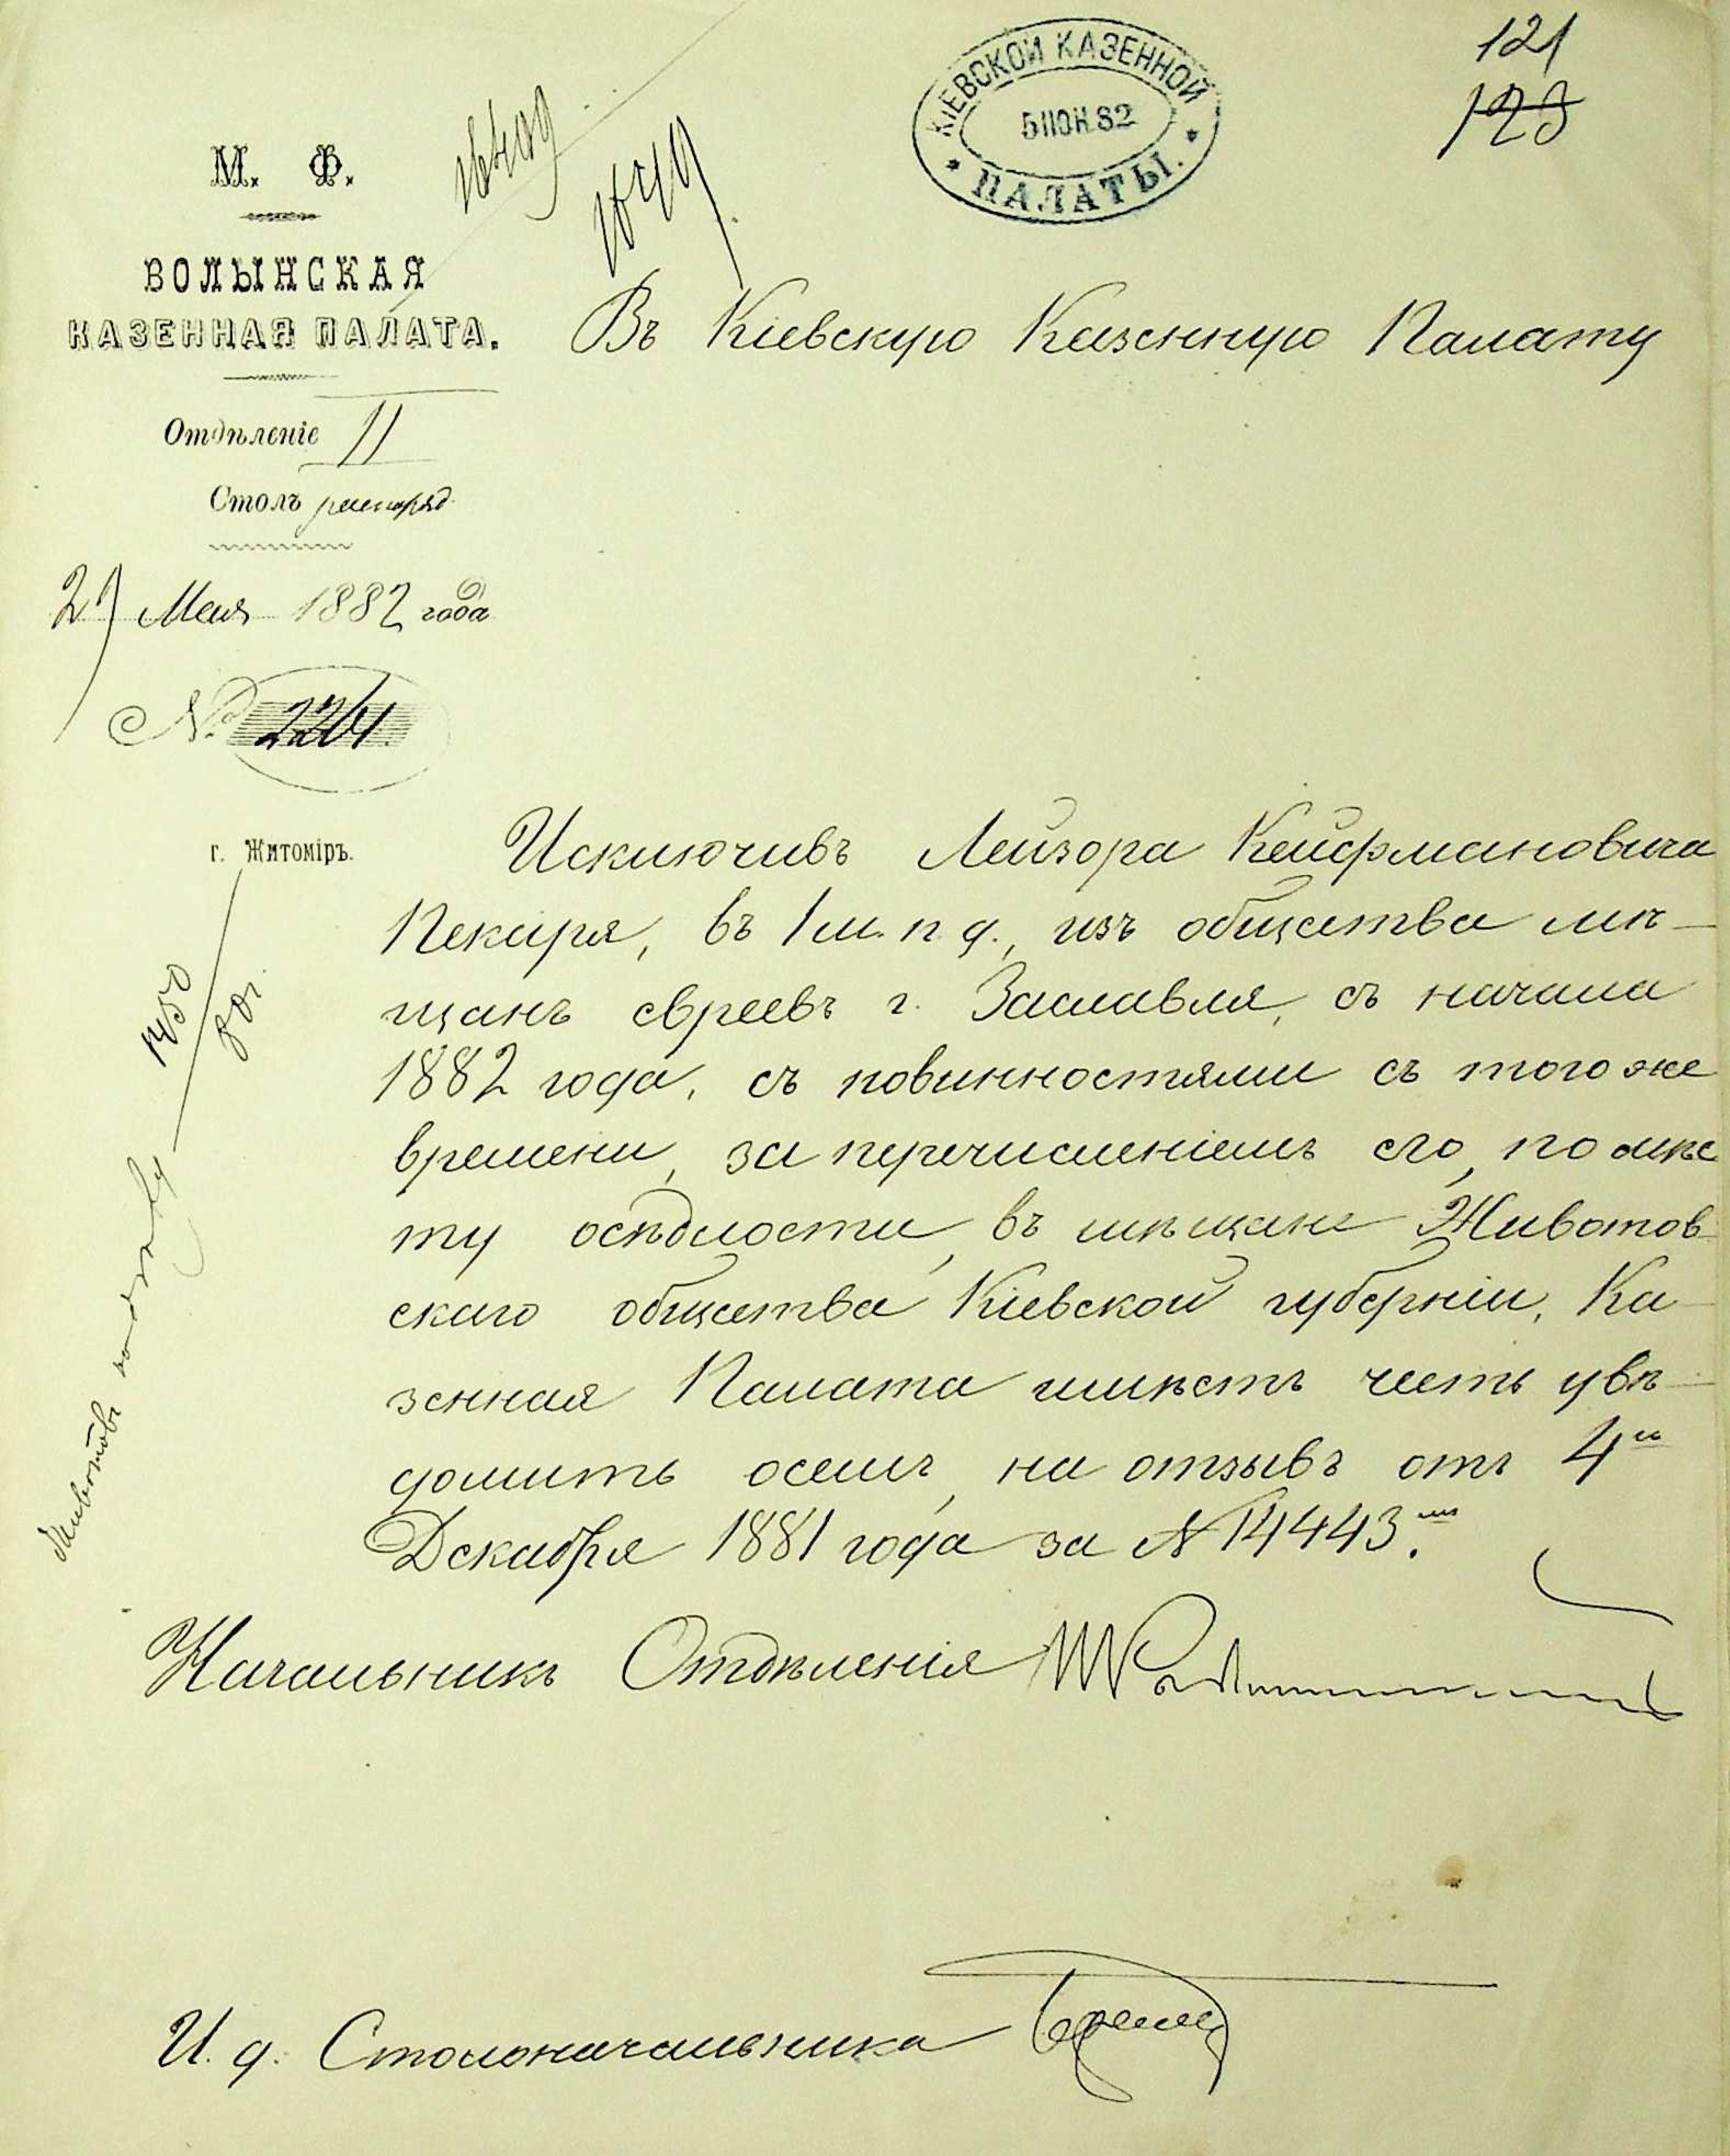 121
123
КІЕВСКОЙ КАЗЕННОЙ
5 ІЮН 82
ПАЛАТЫ.
М. Ф.
ВОЛЫНСКАЯ
КАЗЕННАЯ ПАЛАТА.
Отдѣленіе II
Столъ распоряд.
Мая 1882 года
№ 2261
г. Житоміръ.
Въ Кіевскую Казенную Палату
Исключивъ Лейзора Кейфмановича
Пекаря, въ 1 м. п. д., изъ общества мѣ-
щанъ евреевъ г. Заславля, съ начала
1882 года, съ повинностями съ того же
времени, за перечисленіемъ его, по мѣс
ту осѣдлости, въ мѣщане Животов-
скаго общества Кіевской губерніи, Ка-
зенная Палата имѣетъ честь увѣ-
домить о семъ, на отзывъ отъ 4го
Декабря 1881 года за № 14443.
Начальникъ Отдѣленія
И. д. Столоначальника